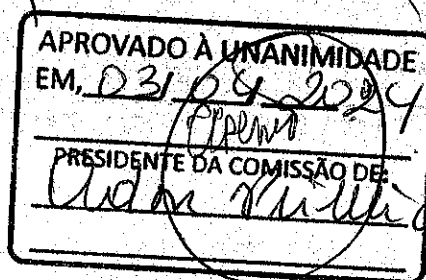 APROVADO À UNANIMIDADE
EM, 03/04/2024
PRESIDENTE DA COMISSÃO DE: